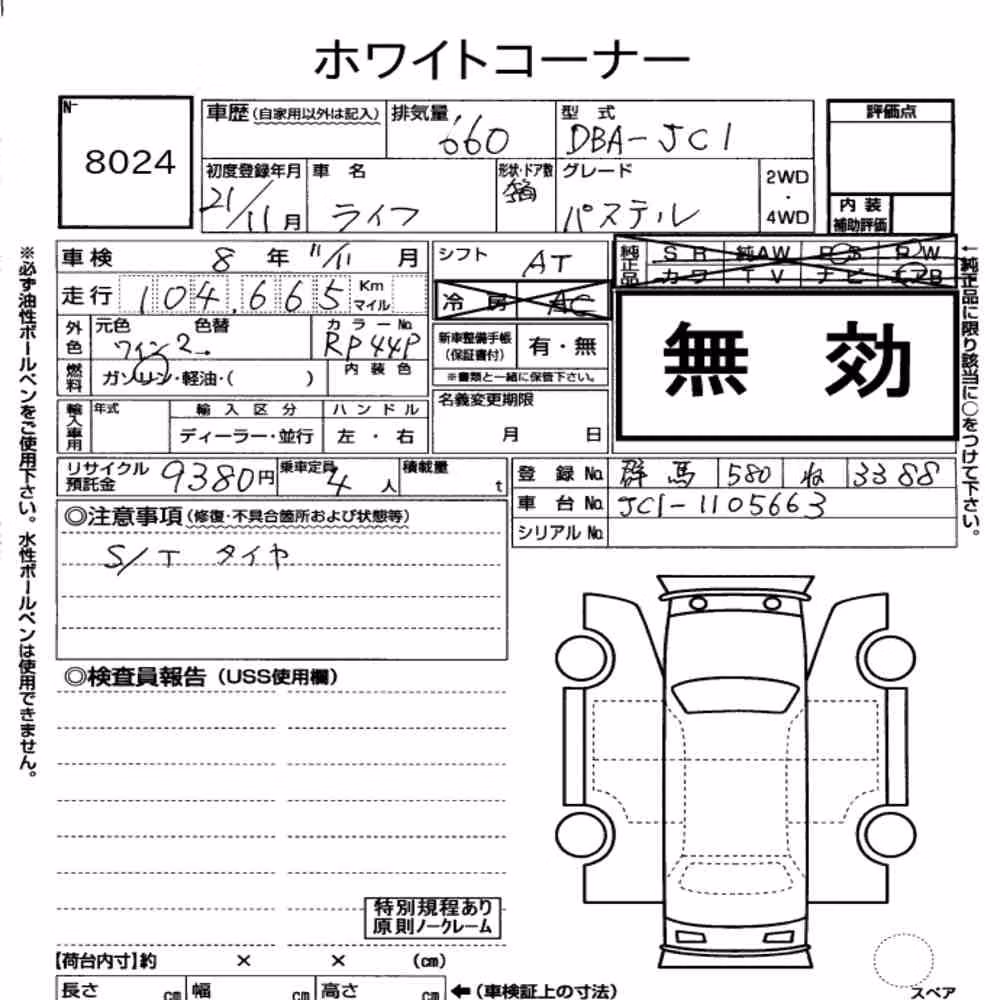 ホワイトコーナー
N-
8024
車歴(自家用以外は記入) 排気量 660 型式 DBA-JC1
評価点
初度登録年月 21/11月 車名 ライフ 形状・ドア数 箱 グレード パステル 2WD・4WD
内装補助評価
車検 8年 11/11月 シフト AT
純正品 SR 純AW PS PW
カワ TV ナビ エアB
走行 104,665 Km マイル
冷房 AC
外色 元色 ワイン2 色替 カラーNo. RP44P
新車整備手帳(保証書付) 有・無
※書類と一緒に保管下さい。
無効
燃料 ガソリン・軽油・( ) 内装色
名義変更期限 月 日
輸入車用 年式 輸入区分 ディーラー・並行 ハンドル 左・右
リサイクル預託金 9380円 乗車定員 4人 積載量 t
登録No. 群馬 580 ね 3388
車台No. JC1-1105663
シリアルNo.
◎注意事項(修復・不具合箇所および状態等)
S/T タイヤ
◎検査員報告(USS使用欄)
特別規程あり
原則ノークレーム
【荷台内寸】約 × × (cm)
長さ cm 幅 cm 高さ cm ←(車検証上の寸法)
スペア
※必ず油性ボールペンをご使用下さい。水性ボールペンは使用できません。
←純正品に限り該当に○をつけて下さい。